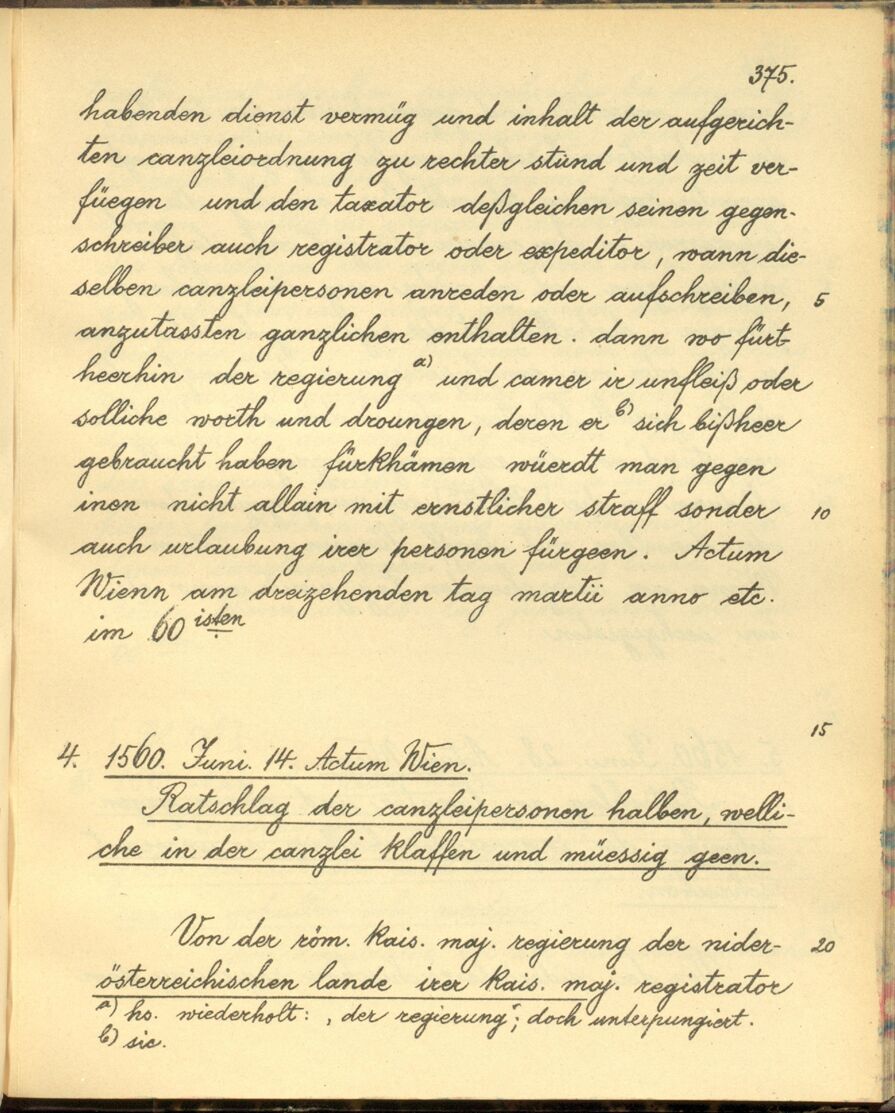 375.
habenden dienst vermüg und inhalt der aufgerich-
ten canzleiordnung zu rechter stund und zeit ver-
füegen und den taxator deßgleichen seinen gegen-
schreiber auch registrator oder expeditor, wann die-
selben canzleipersonen anreden oder aufschreiben, 5
anzutassten ganzlichen enthalten. dann wo fürt-
heerhin der regierung a) und camer ir unfleiß oder
solliche worth und droungen, deren er b) sich bißheer
gebraucht haben fürkhämen wüerdt man gegen
inen nicht allain mit ernstlicher straff sonder 10
auch urlaubung irer personen fürgeen. Actum
Wienn am dreizehenden tag martii anno etc.
im 60 isten
15
4. 1560. Juni. 14. Actum Wien.
Ratschlag der canzleipersonen halben, welli-
che in der canzlei klaffen und müessig geen.
Von der röm. kais. maj. regierung der nider- 20
österreichischen lande irer kais. maj. registrator
a) hs. wiederholt: „der regierung“; doch unterpungiert.
b) sic.